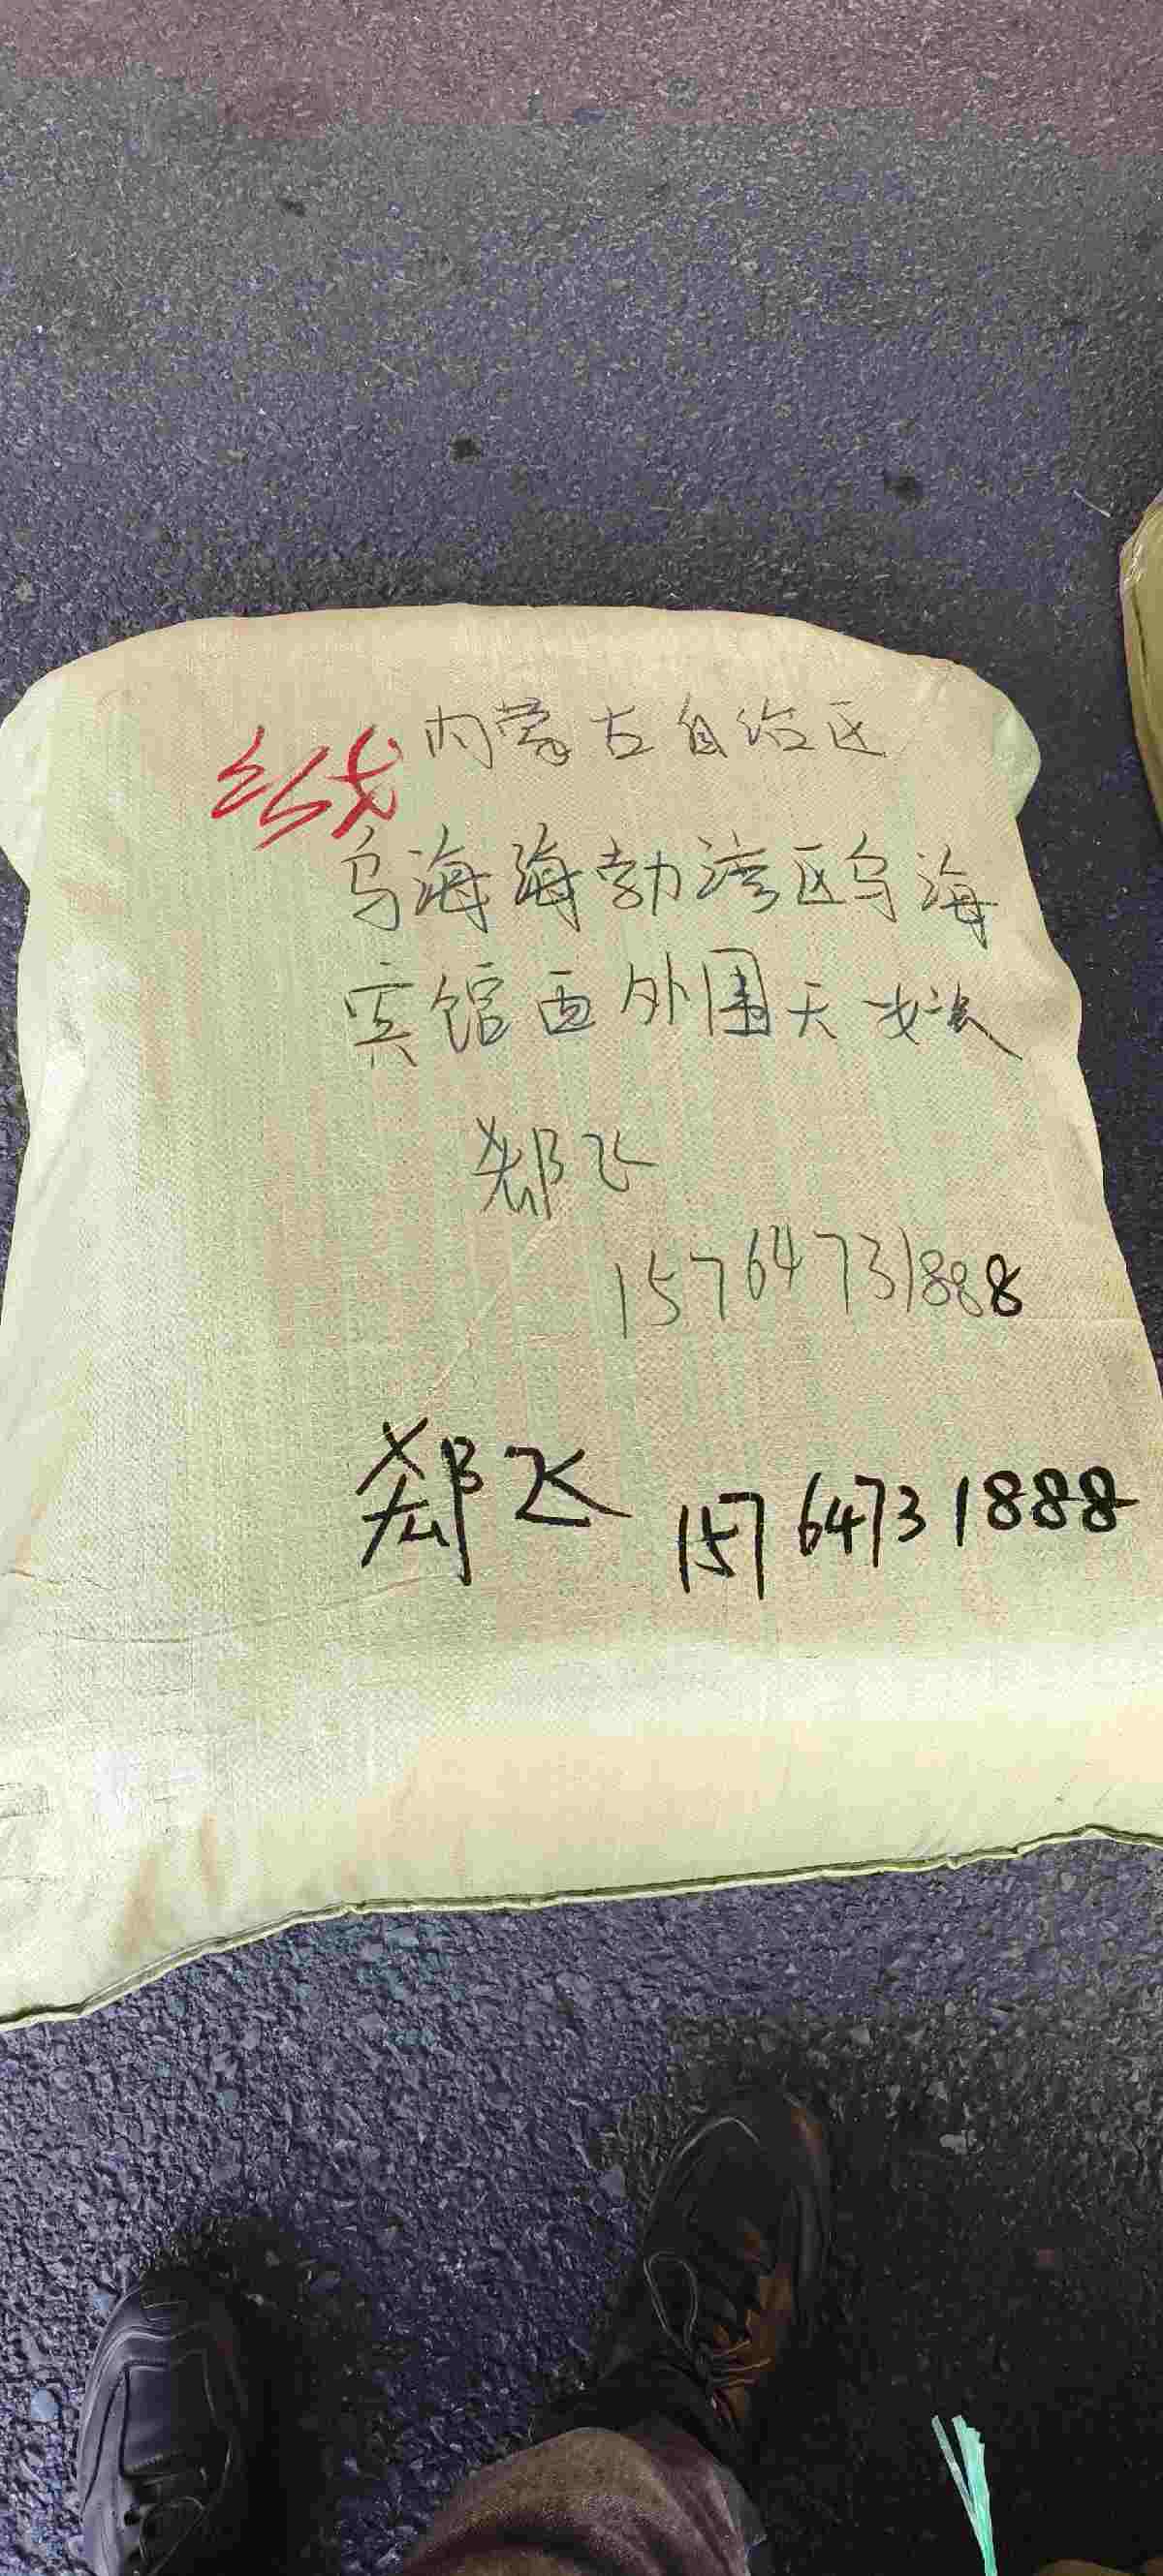 内蒙古自治区
乌海海勃湾区乌海
宾馆西外围天
郄飞
15764731888
郄飞 15764731888